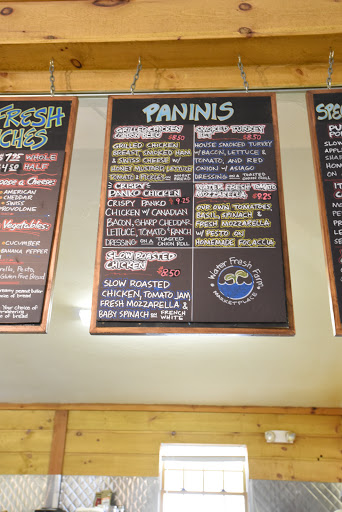 FRESH
ICHES
$7.25 WHOLE
HALF
Choose a Cheese:
AMERICAN
CHEDDAR
SWISS
PROVOLONE
Vegetables:
CUCUMBER
BANANA PEPPER
PANINIS
GRILLED CHICKEN
$8.50
GRILLED CHICKEN
BREAST, SMOKED HAM
& SWISS CHEESE W/
HONEY MUSTARD, LETTUCE
TOMATO & PICKLES
CRISPY
PANKO CHICKEN $9.25
CRISPY PANKO
CHICKEN W/ CANADIAN
BACON, SHARP CHEDDAR
LETTUCE, TOMATO & RANCH
DRESSING ON A TOASTED ONION ROLL
SLOW ROASTED
CHICKEN $8.50
SLOW ROASTED
CHICKEN, TOMATO JAM
FRESH MOZZARELLA &
BABY SPINACH ON FRENCH WHITE
SMOKED TURKEY
BLT $8.50
HOUSE SMOKED TURKEY
W/ BACON, LETTUCE &
TOMATO, AND RED
ONION W/ ASIAGO
DRESSING ON A TOASTED ONION ROLL
WATER FRESH TOMATO
MOZZARELLA $9.25
OUR OWN TOMATOES
BASIL, SPINACH &
FRESH MOZZARELLA
W/ PESTO ON
HOMEMADE FOCACCIA
Water Fresh Farm
MARKETPLACE
SPE